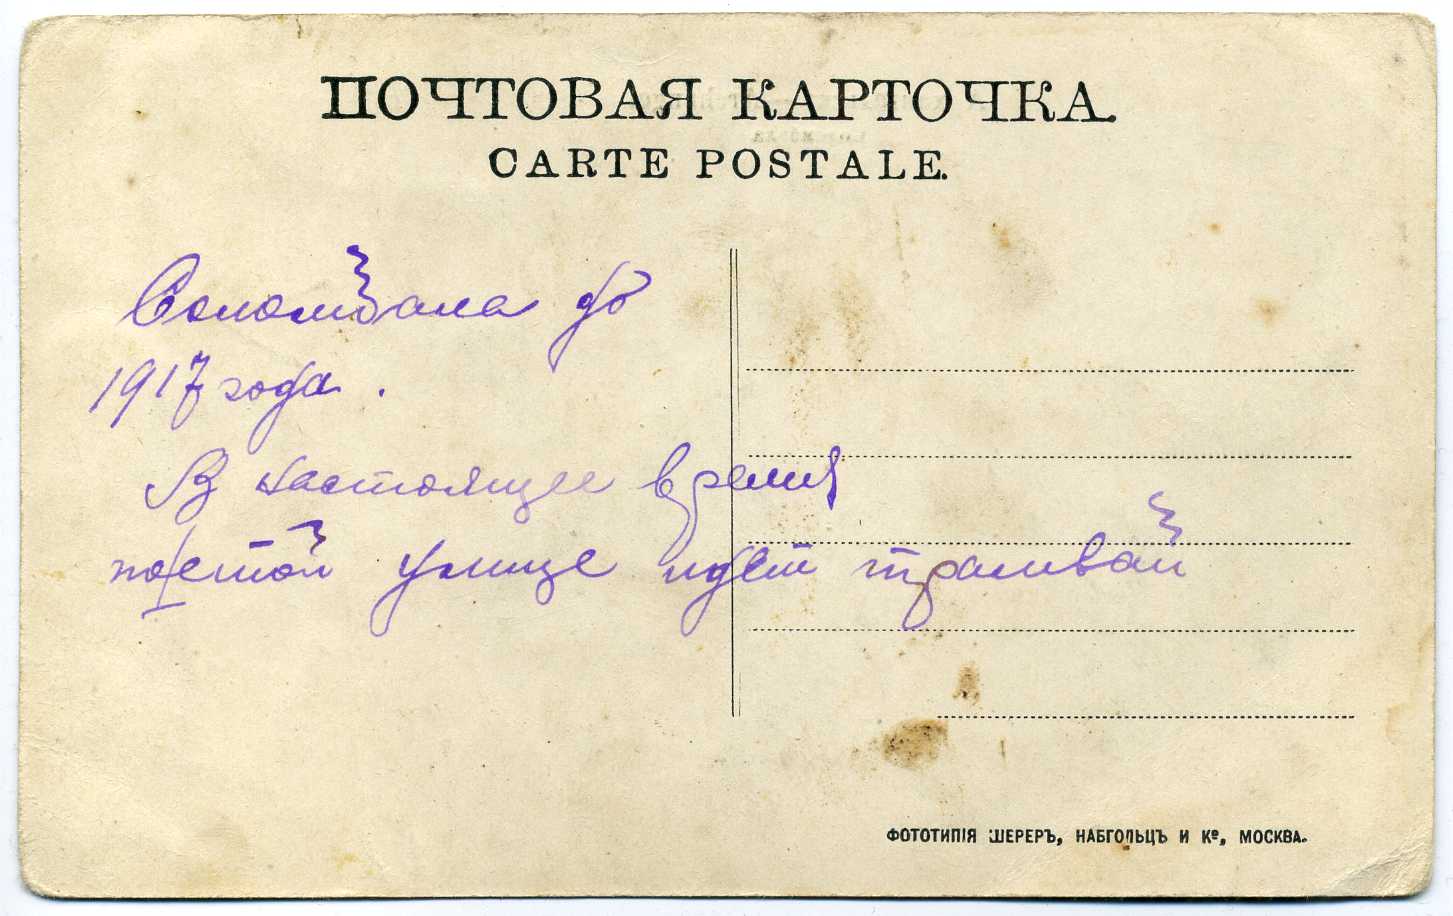 ПОЧТОВАЯ КАРТОЧКА.
CARTE POSTALE.
Соломбала до
1917 года.
В настоящее время
по этой улице идет трамвай
ФОТОТИПІЯ ШЕРЕРЪ, НАБГОЛЬЦЪ И Кº, МОСКВА.